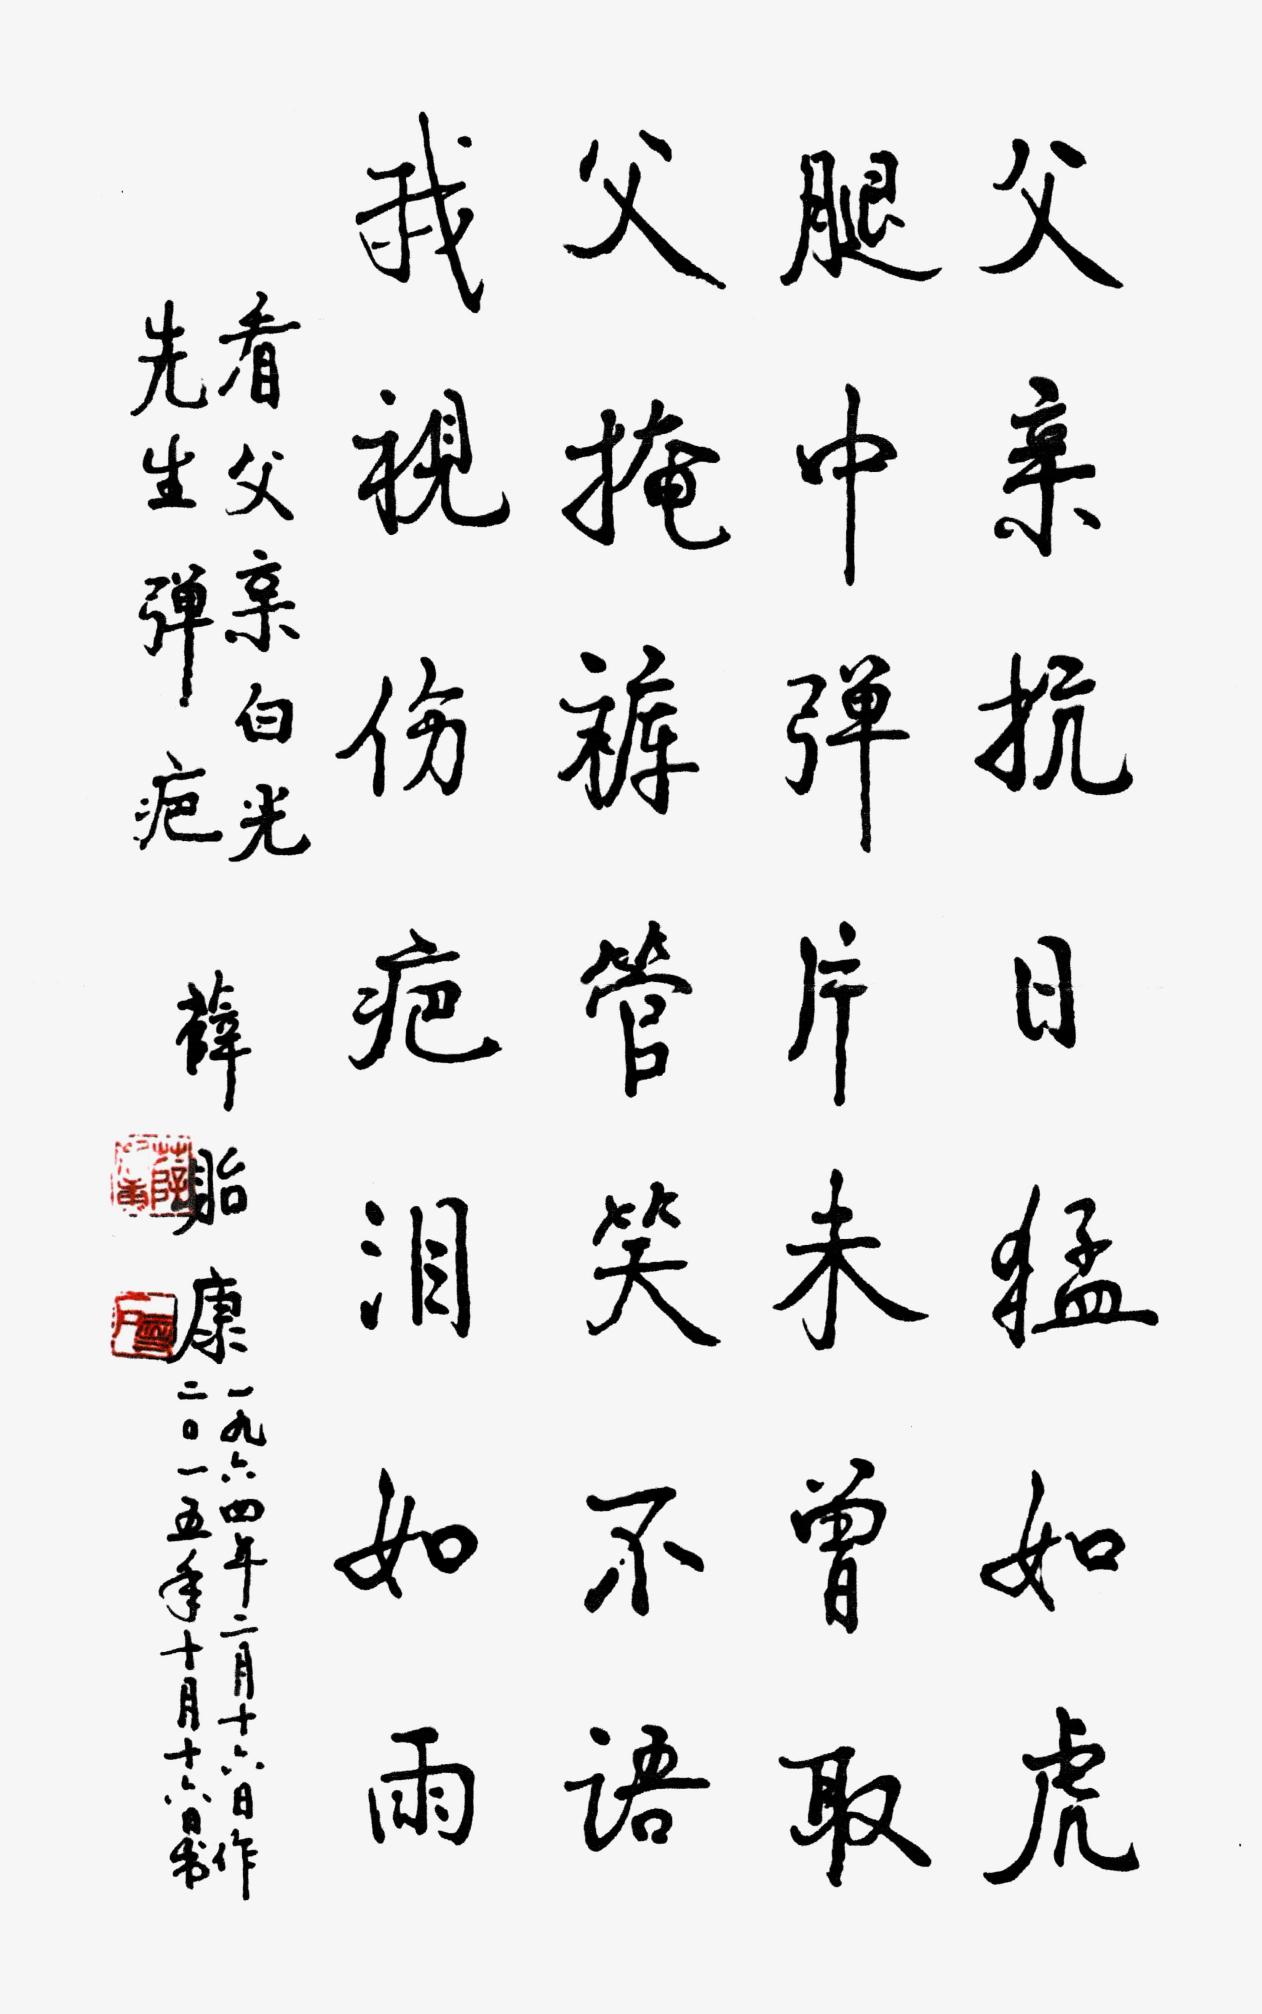 父亲抗日猛如虎
腿中弹片未曾取
父掩裤管笑不语
我视伤疤泪如雨
看父亲白光
先生弹疤
薛贻康
一九六四年二月十六日作
二〇一五年十月十六日书